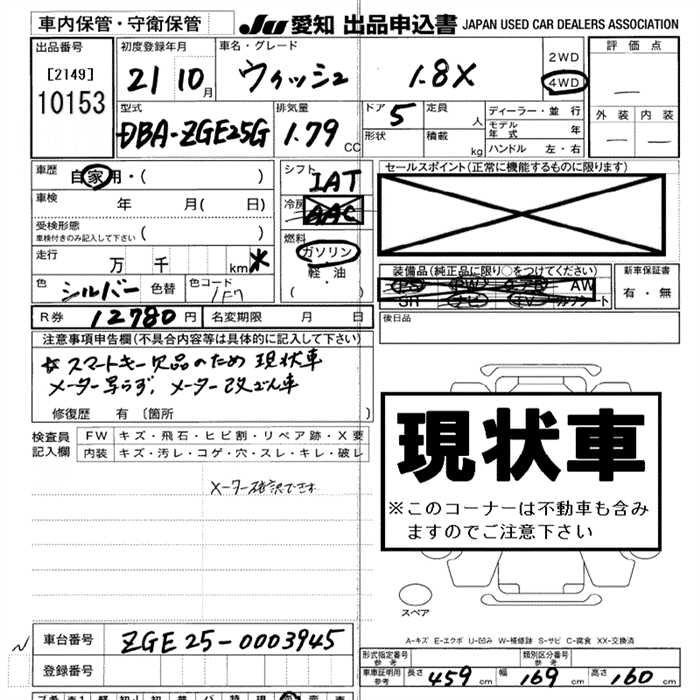 車内保管・守衛保管
JU 愛知 出品申込書 JAPAN USED CAR DEALERS ASSOCIATION
出品番号
[2149]
10153
初度登録年月
21 10 月
車名・グレード
ウィッシュ 1.8X
2WD
4WD
評価点
外装 内装
型式
DBA-ZGE25G
排気量
1.79 CC
ドア
5
形状
定員
人
積載
kg
ディーラー・並行
モデル年式 年
ハンドル 左・右
車歴
自家用・( )
車検
年 月( 日)
受検形態
車検付きのみ記入して下さい
( )
走行
万 千 km
色
シルバー
色替
色コード
1F7
シフト
IAT
冷房
AAC
燃料
ガソリン
軽・油
( )
セールスポイント(正常に機能するものに限ります)
装備品(純正品に限り○をつけてください)
PS PW エアB AW
SR ナビ TV カワシート
新車保証書
有・無
後日品
R券 12780円 名変期限 月 日
注意事項申告欄(不具合内容等は具体的に記入して下さい)
スマートキー欠品のため 現状車
メーター写らず、メーター改ざん車
修復歴 有〔箇所 〕
検査員記入欄
FW キズ・飛石・ヒビ割・リペア跡・X要
内装 キズ・汚レ・コゲ・穴・スレ・キレ・破レ
メーター確認できず
現状車
※このコーナーは不動車も含み
ますのでご注意下さい
スペア
A-キズ E-エクボ U-凹み W-補修跡 S-サビ C-腐食 XX-交換済
車台番号 ZGE25-0003945
登録番号
形式指定番号 参考
類別区分番号 参考
車庫証明用 参考 長さ 459 cm 幅 169 cm 高さ 160 cm